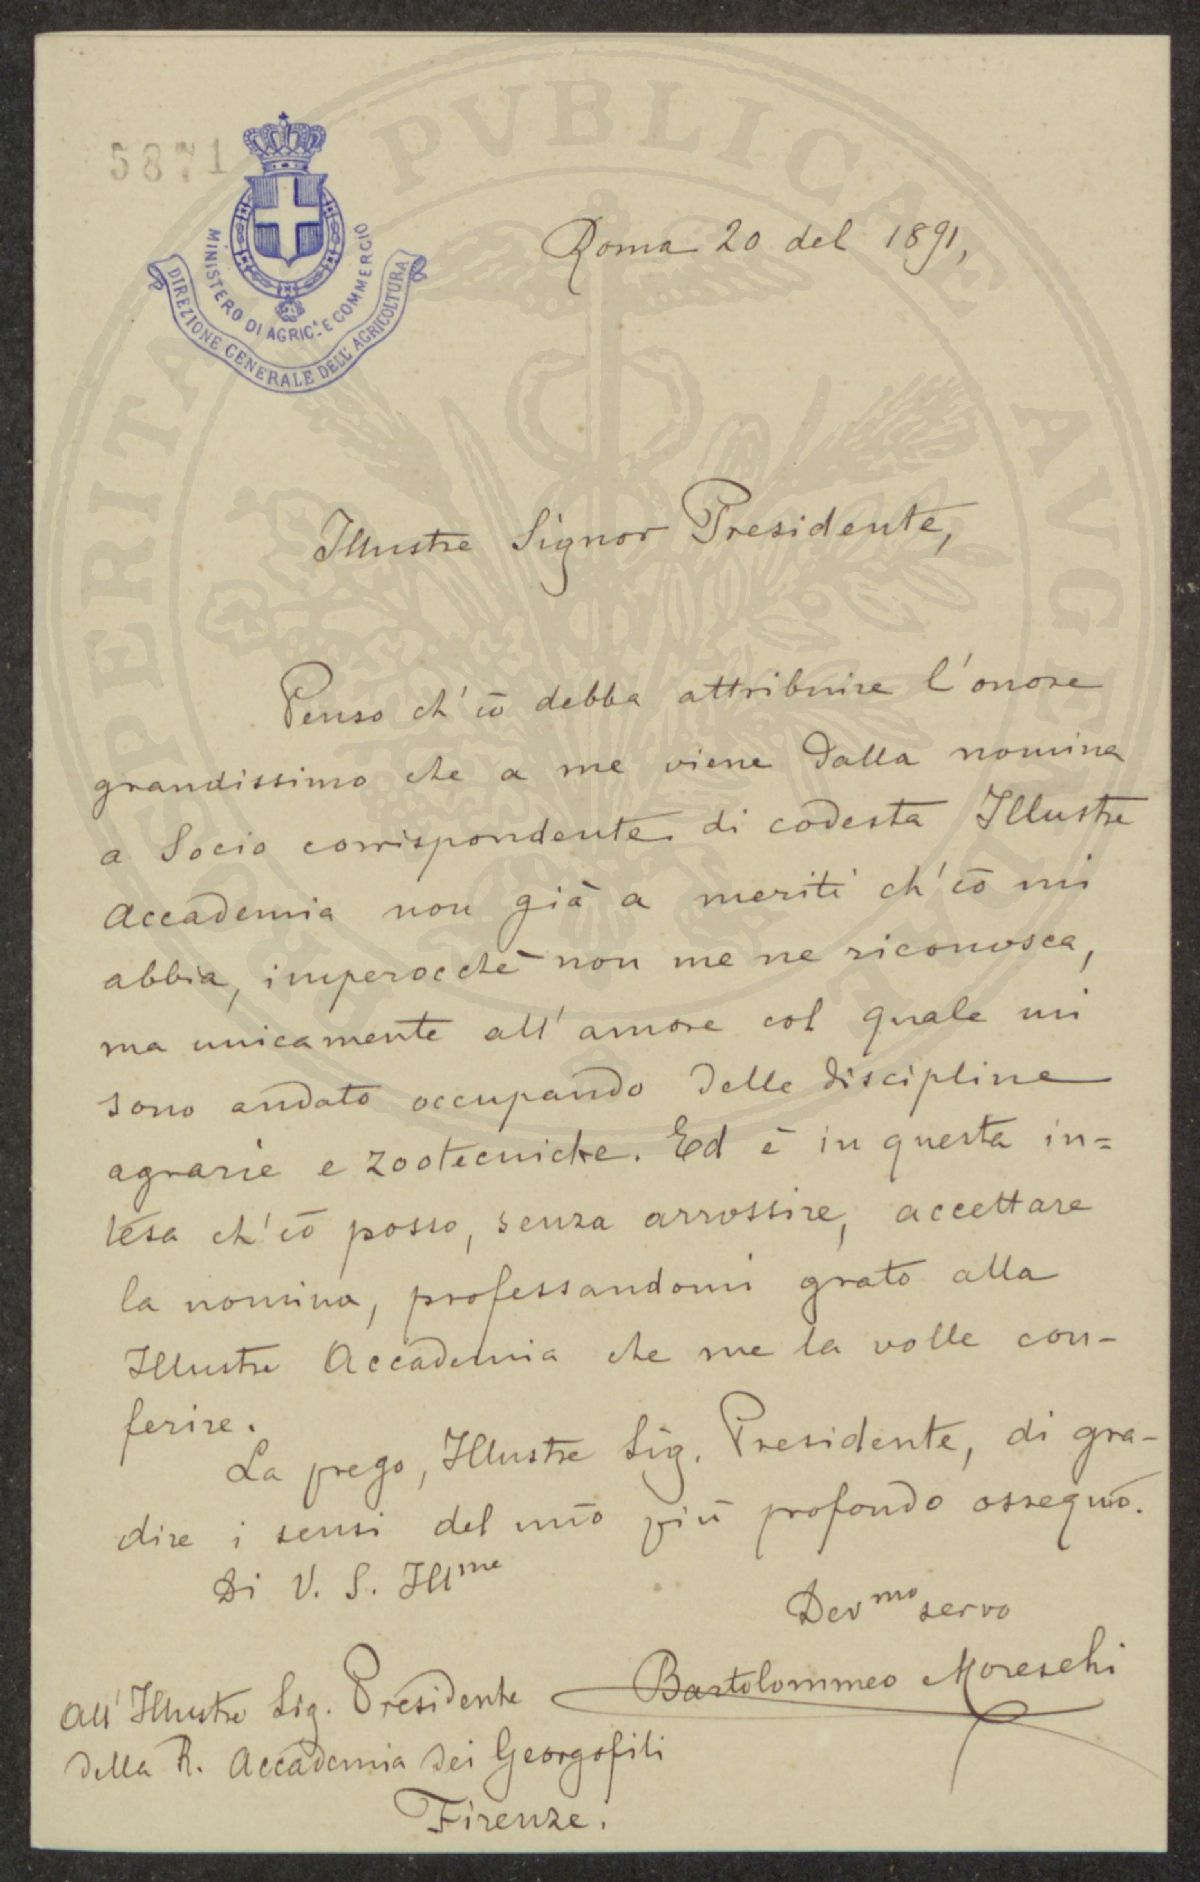 5871
MINISTERO DI AGRIC.A E COMMERCIO
DIREZIONE GENERALE DELL'AGRICOLTURA
PROSPERITATI PUBLICAE AUGENDAE
Roma 20 del 1891,
Illustre Signor Presidente,
Penso ch'io debba attribuire l'onore
grandissimo che a me viene dalla nomina
a Socio corrispondente di codesta Illustre
Accademia non già a meriti ch'io mi
abbia, imperocchè non me ne riconosca,
ma unicamente all'amore col quale mi
sono andato occupando delle discipline
agrarie e zootecniche. Ed è in questa in=
tesa ch'io posso, senza arrossire, accettare
la nomina, professandomi grato alla
Illustre Accademia che me la volle con-
ferire.
La prego, Illustre Sig. Presidente, di gra-
dire i sensi del mio più profondo ossequio.
Di V. S. Ill.me
Dev.mo servo
Bartolommeo Moreschi
All'Illustre Sig. Presidente
della R. Accademia dei Georgofili
Firenze.